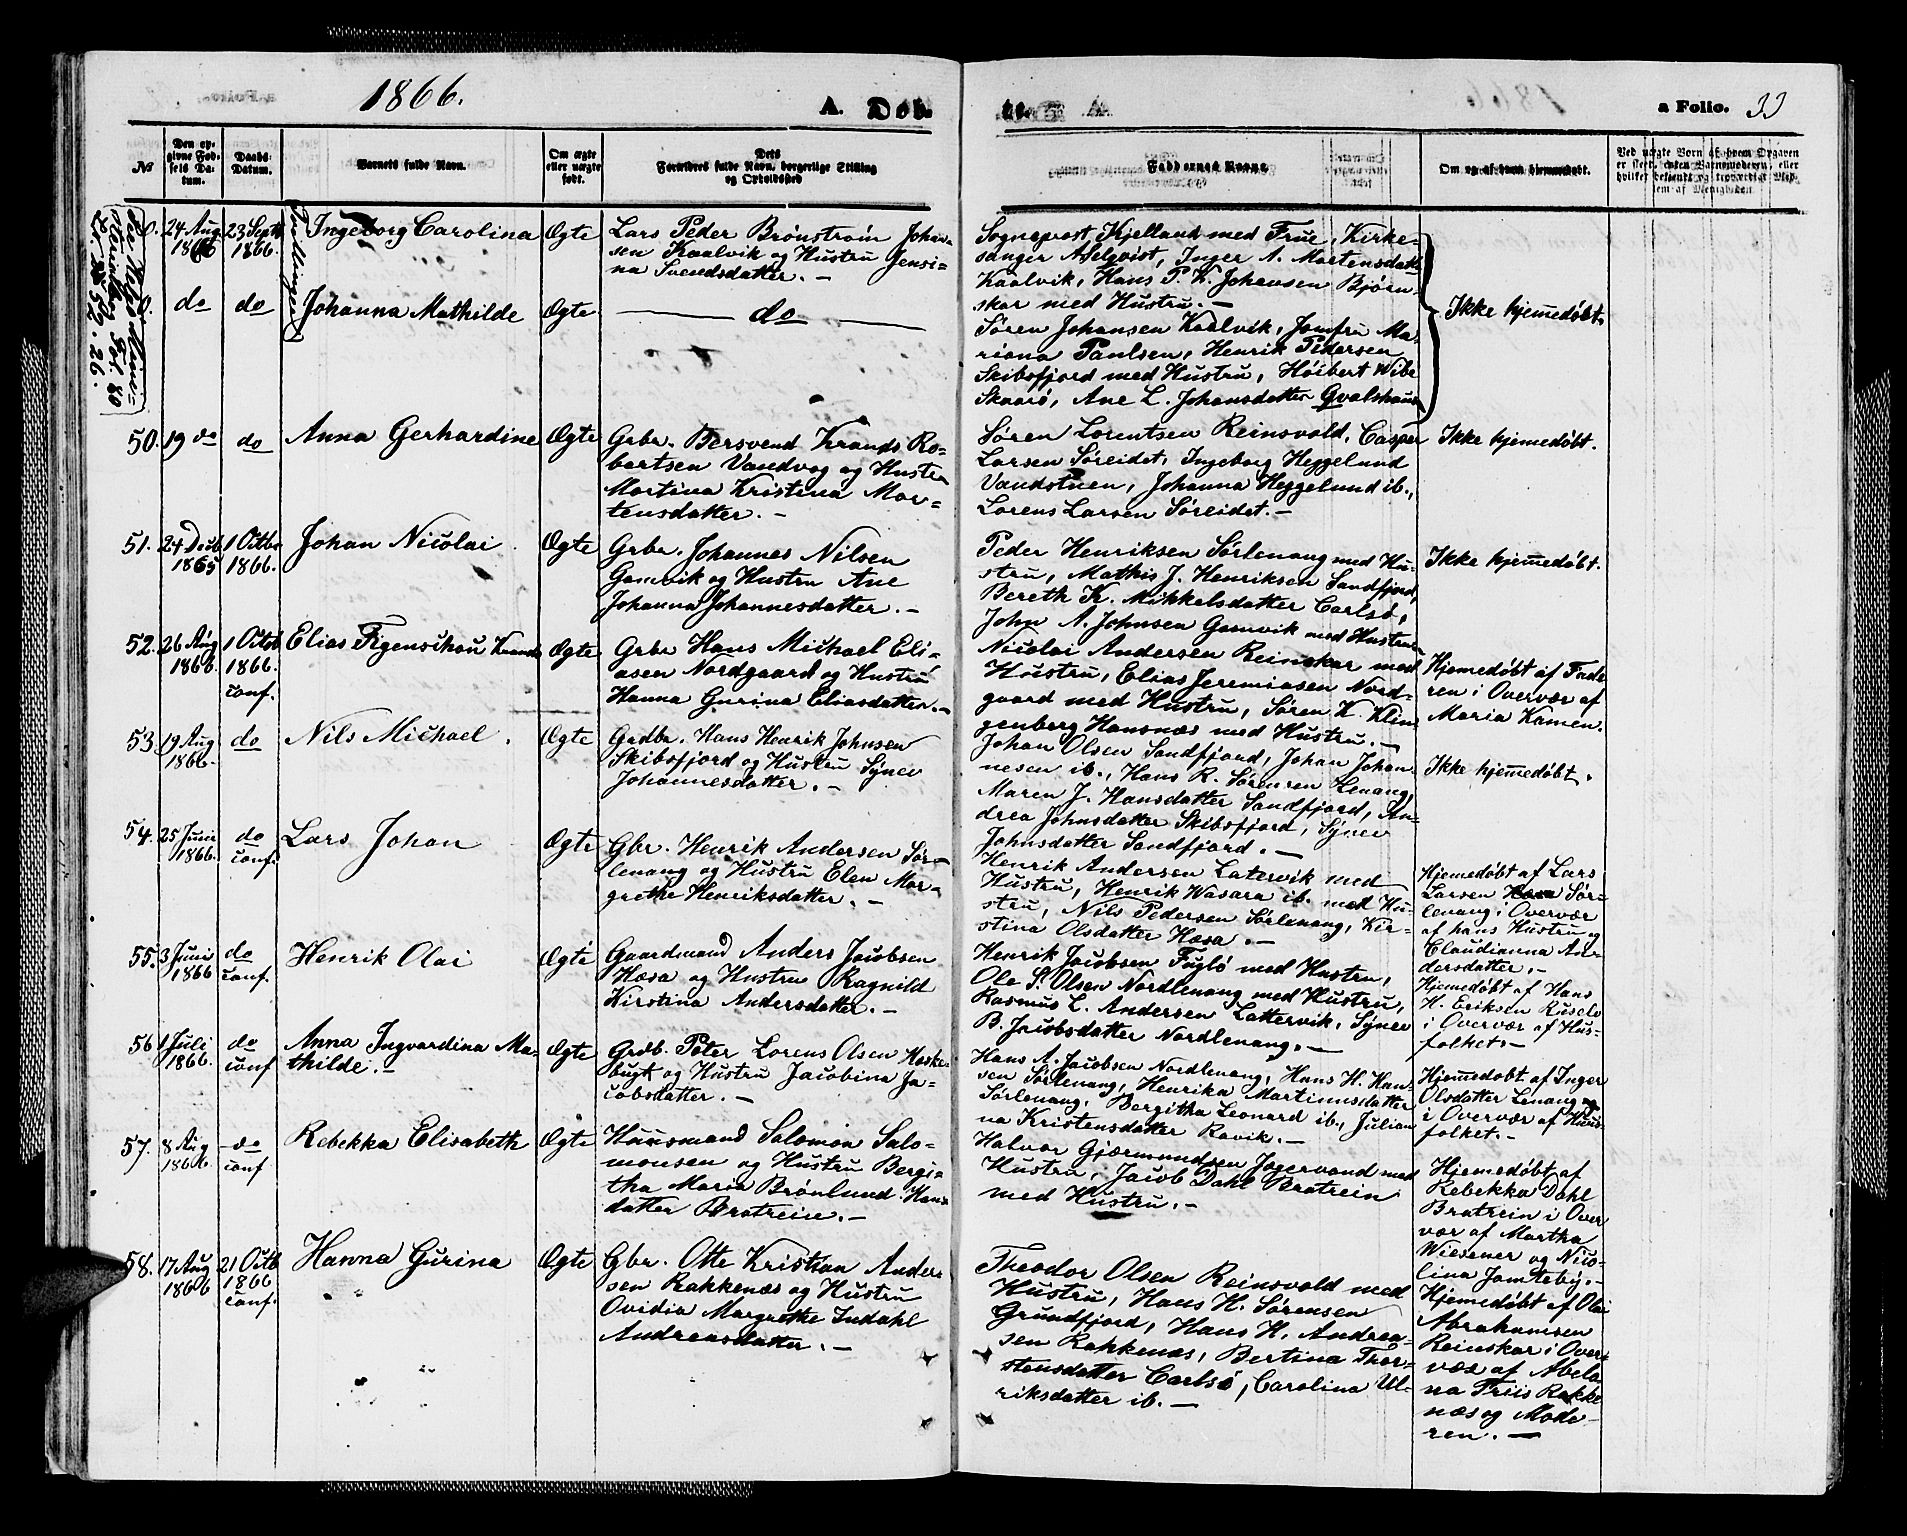 1866.
A. Døb-
te.
a Folio. 33
No
Den opgivne Fødsels Datum.
Daabs Datum.
Barnets fulde Navn.
Om ægte eller uægte født.
Dets Forældres fulde Navn, borgerlige Stilling og Opholdssted
Faddernes Navne.
Om og af hvem hjemmedøbt.
Ved uægte Børn af hvem Opgaven er skeet, enten Barnemoderen, eller hvilket bekiendt og troværdigt Medlem af Menigheden
Fol. 80
Tvillinger
0.
24 Aug
1866
23 Sept
1866.
Ingeborg Carolina
Ægte
Lars Peder Brønstrøm Johan-
sen Kaalvik og Hustru Jensi-
na Svendsdatter. –
Sogneprest Kjelland med Frue, Kirke-
sanger Aselqvist, Inger A. Mortensdatt
Kaalvik, Hans P. K. Johansen Bjørn-
skar med Hustru. –
0.
do
do
Johanna Mathilde
Ægte
— do —
Søren Johansen Kaalvik, Jomfru Ma-
riana Paulsen, Henrik Pedersen
Skibsfjord med Hustru, Høibert Wibe
Skaarø, Ane L. Johansdatter Gvalshaus
Ikke hjemedøbt.
50.
19 do
do
Anna Gerhardine
Ægte
Grbr. Bersvend Krands Ro-
bertsen Vandvog og Hustru
Martina Kristina Mor-
tensdatter. –
Søren Lorentsen Reinsvold, Casper
Larsen Søreidet, Ingeborg Heggelund
Vandstuen, Johanna Heggelund ib.,
Lorens Larsen Søreidet. –
Ikke hjemedøbt.
51.
24 Decb
1865
1 Octbr
1866.
Johan Nicolai
Ægte
Grbr. Johannes Nilsen
Gamvik og Hustru Ane
Johanna Johannesdatter. –
Peder Henriksen Sørlenang med Hu-
stru, Mathis J. Henriksen Sandfjord,
Bereth K. Mikkelsdatter Carlsø,
John A. Johnsen Gamvik med Hustru
Ikke hjemedøbt.
52.
26 Aug
1866
1 Octb
1866.
conf.
Elias Figenschou Knands
Ægte
Grbr Hans Michael Eli-
asen Nordgaard og Hustru
Hanna Gurina Eliasdatter. –
Nicolai Andersen Reinskar med
Hustru, Elias Jeremiasen Nord-
gaard med Hustru, Søren K. Klin-
genberg Hansnæs med Hustru. –
Hjemedøbt af Fade
ren i Overvær af
Maria Kamen.
53.
19 Aug
1866.
do
Nils Michael.
Ægte
Grdbr. Hans Henrik Johnsen
Skibsfjord og Hustru Synev
Johannesdatter. –
Johan Olsen Sandfjord, Johan Johan-
nesen ib., Hans R. Sørensen Lenang,
Maren J. Hansdatter Sandfjord, An-
drea Johnsdatter Skibsfjord, Synev
Johnsdatter Sandfjord. –
Ikke hjemedøbt.
54.
25 Juni
1866.
do
conf.
Lars Johan
Ægte
Gbr. Henrik Andersen Sør-
lenang og Hustru Elen Mar-
grethe Henriksdatter. –
Henrik Andersen Latervik med
Hustru, Henrik Wasara ib. med Hu-
stru, Nils Pedersen Sørlenang, Kir-
stina Olsdatter Hæsa. –
Hjemedøbt af Lars
Larsen Sør-
lenang i Overvær
af hans Hustru og
Claudianna An-
dersdatter. –
55.
3 Juni
1866
do
conf.
Henrik Olai
Ægte
Gaardmand Anders Jacobsen
Hæsa og Hustru Ragnild
Kirstina Andersdatter. –
Henrik Jacobsen Fuglø med Hustru,
Ole S. Olsen Nordlenang med Hustru,
Rasmus L. Andersen Lattervik, Synev
B. Jacobsdatter Nordlenang. –
Hjemedøbt af Hans
H. Eriksen Ruselv
i Overvær af Hus-
folket. –
56.
1 Juli
1866.
do
conf
Anna Ingvardina Ma-
thilde. –
Ægte
Grdb. Peter Lorens Olsen Kaske-
bugt og Hustru Jacobina Ja-
cobsdatter. –
Hans A. Jacobsen Nordlenang, Hans H. Han-
sen Sørlenang, Henrika Martinusdatter
Sørlenang, Bergitha Leonard ib., Julian
na Kristensdatter Ravik. –
Hjemedøbt af Inger
Olsdatter Lenang
i Overvær af Huus-
folket. –
57.
8 Aug
1866.
do
conf
Rebekka Elisabeth
Ægte
Huusmand Salomon Salo-
monsen og Hustru Bergi-
tha Maria Brønlund Hans-
datter Bratrein. –
Halvor Gjørmundsen Jøgervand med
Hustru, Jacob Dahl Bratrein
med Hustru. –
Hjemedøbt af
Rebekka Dahl
Bratrein i Over
vær af Martha
Wiesener og Nico-
lina Jomteby. –
58.
17 Aug
1866
21 Octb
1866
conf.
Hanna Gurina
Ægte
Gbr. Otte Kristian Ander-
sen Rakkenæs og Hustru
Ovidia Margrethe Indahl
Andreasdatter. –
Theodor Olsen Reinsvold med
Hustru, Hans H. Sørensen
Grundfjord, Hans H. Andrea-
sen Rakkenæs, Bertina Thor-
stensdatter Carlsø, Carolina Ul-
riksdatter ib. –
Hjemedøbt af Olai
Abrahamsen
Reinskar i Over-
vær af Abelo-
na Friis Rakke
næs og Mode-
ren. –